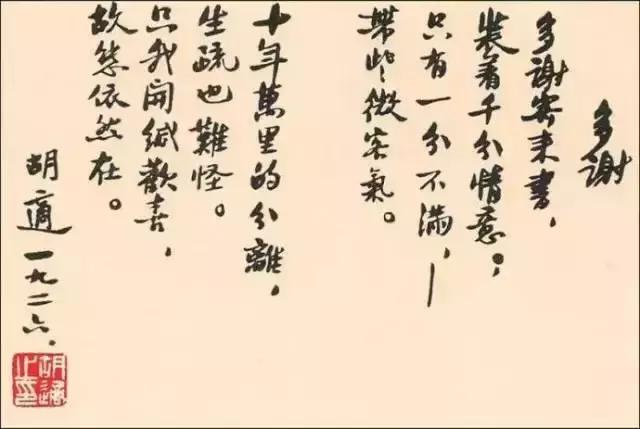 多謝
多謝寄來書，
裝着千分情意。，
只有一分不滿，—
帶些微客氣。
十年萬里的分離，
生疏也難怪。
只我開緘歡喜，
故態依然在。
胡適 一九二六，
胡適之印